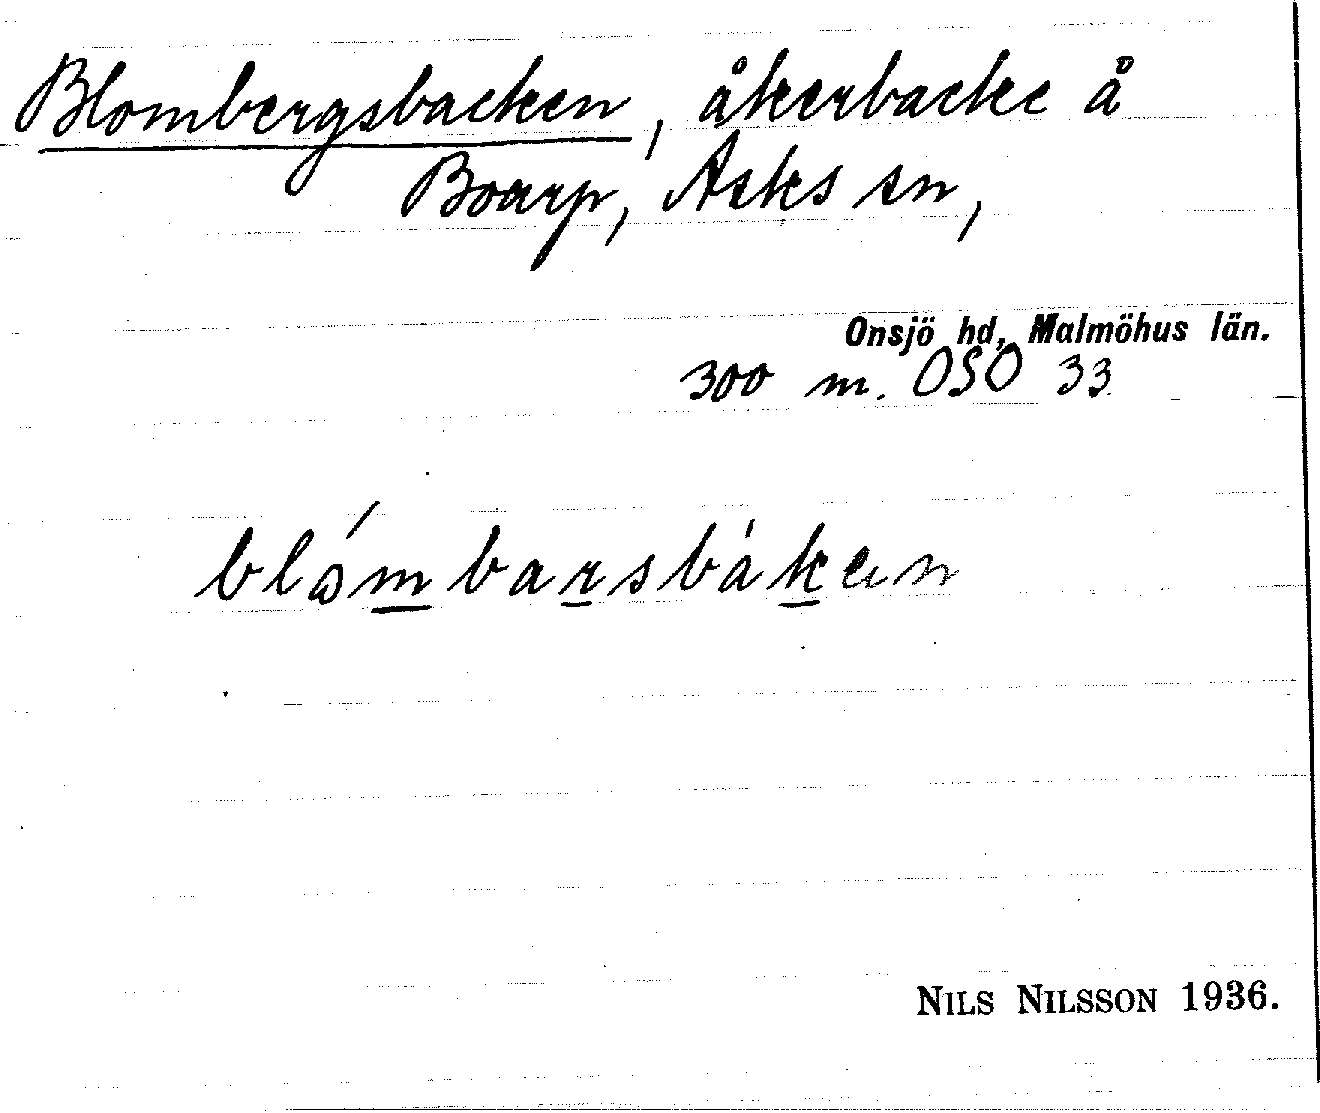 Blombergsbacken, åkerbacke å
Boarp, Asks sn,
Onsjö hd, Malmöhus län.
300 m. OSO 33
NILS NILSSON 1936.